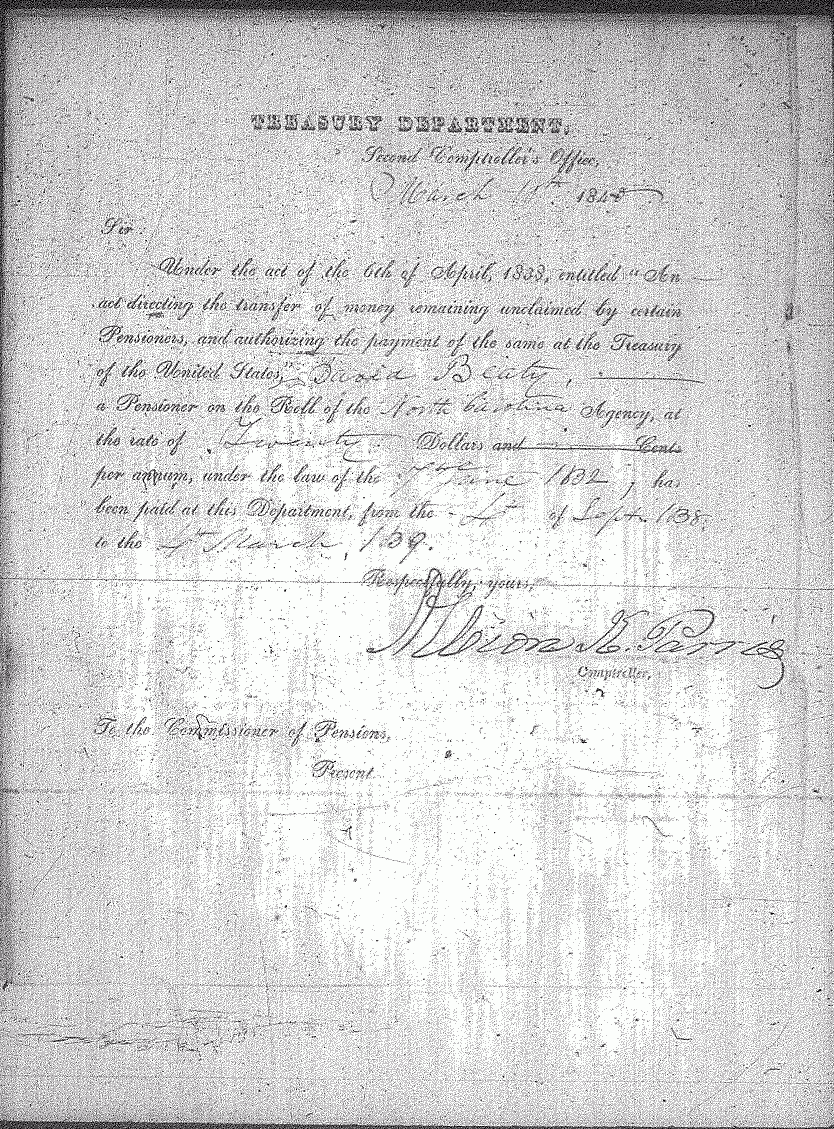 TREASURY DEPARTMENT,
Second Comptroller's Office,
March 11th 1840
Sir
Under the act of the 6th of April, 1838, entitled "An
act directing the transfer of money remaining unclaimed by certain
Pensioners, and authorizing the payment of the same at the Treasury
of the United States," David Beaty,
a Pensioner on the Roll of the North Carolina Agency, at
the rate of Twenty Dollars and Cents
per annum, under the law of the 7th June 1832, has
been paid at this Department, from the 4th of Sept. 1838,
to the 4th March, 1839.
Respectfully, yours,
Albion K. Parris
Comptroller.
To the Commissioner of Pensions,
Present.